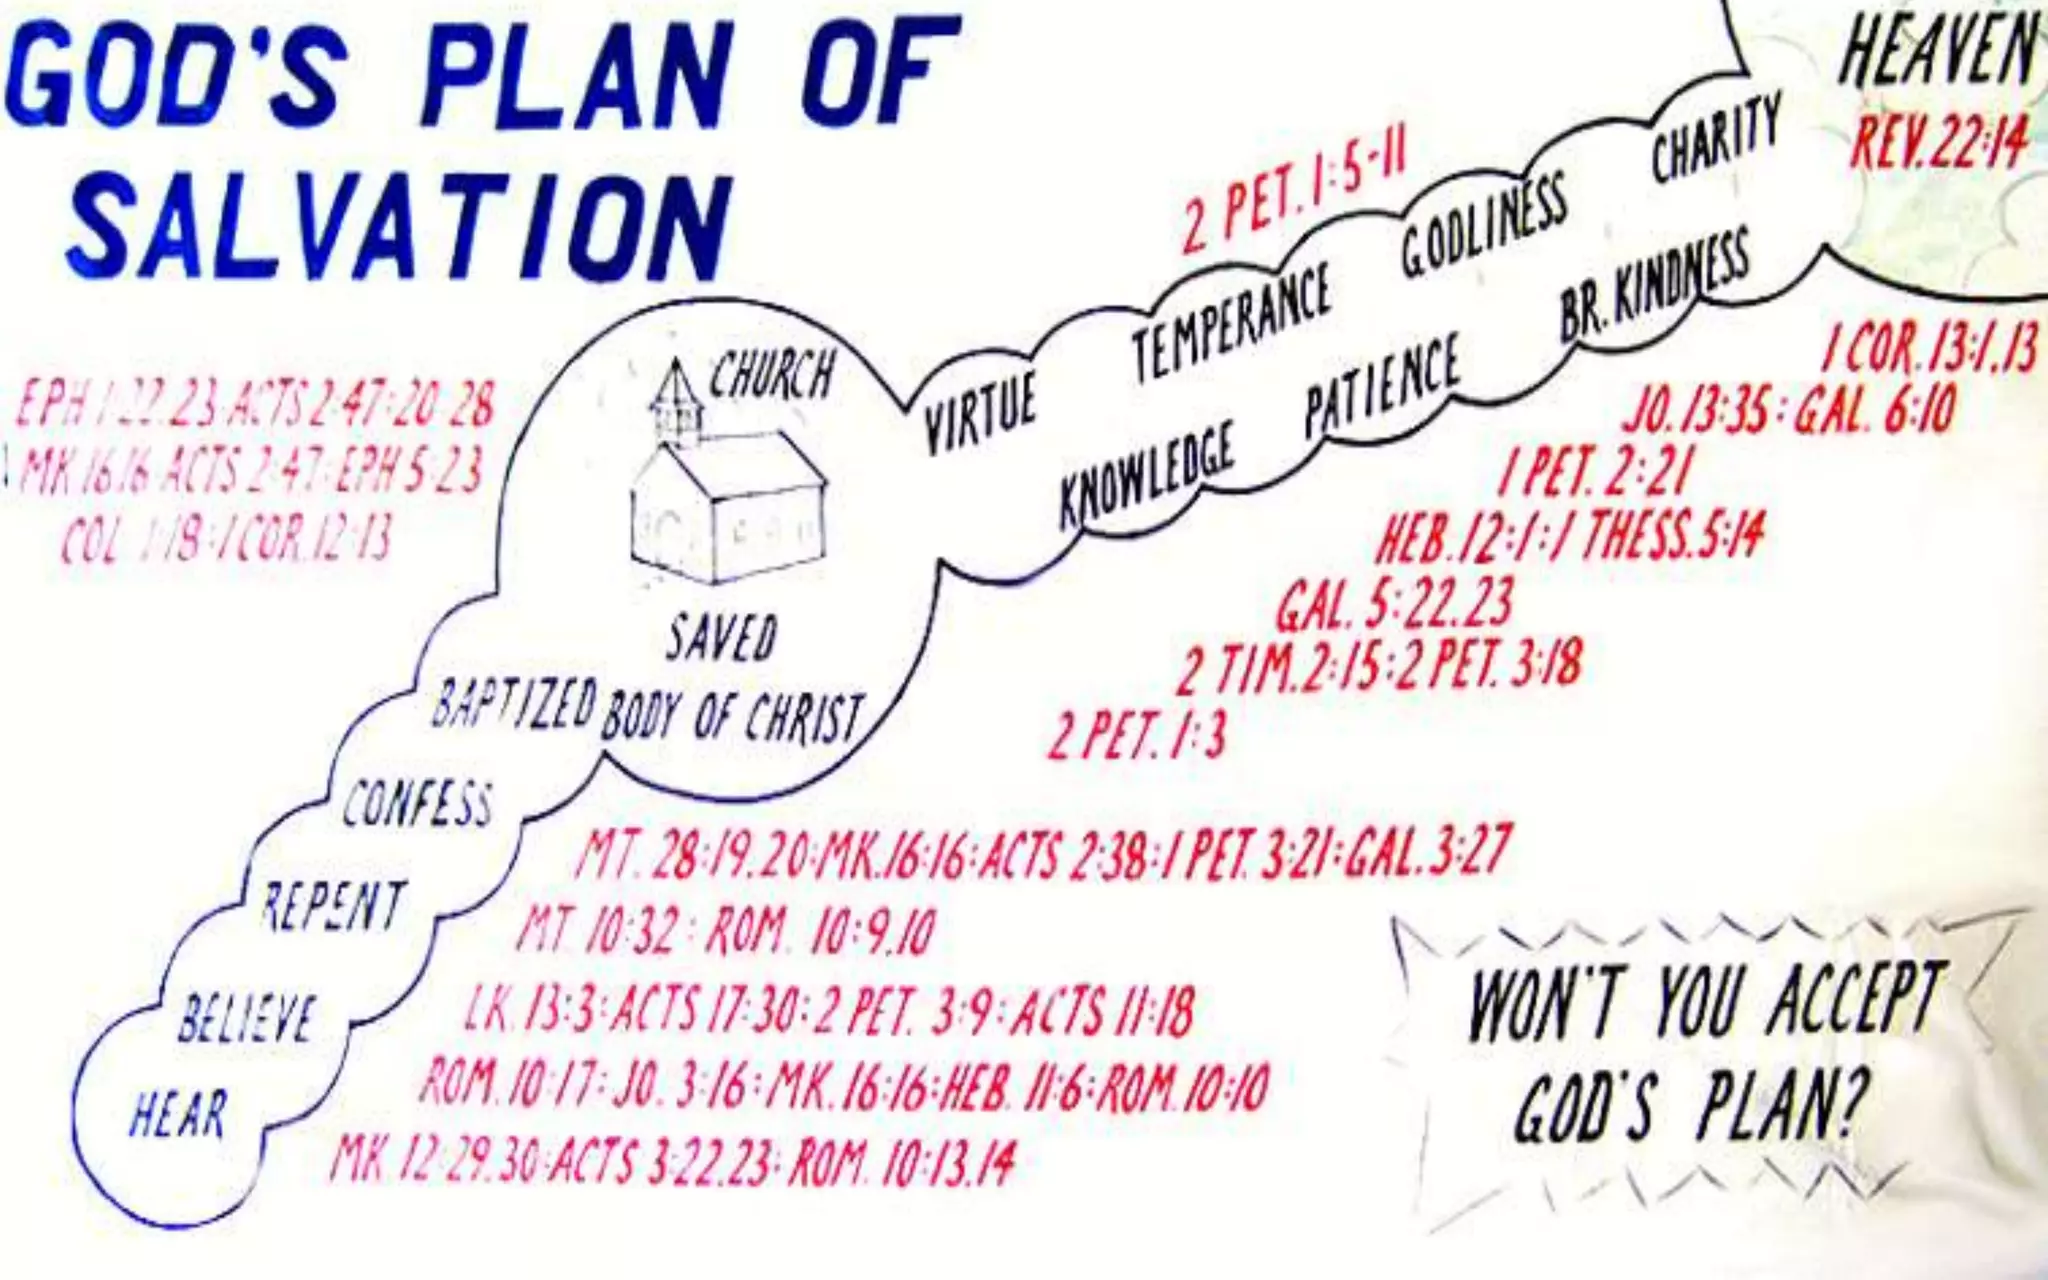 GOD'S PLAN OF
SALVATION
HEAVEN
REV. 22:14
2 PET. 1:5-11
CHARITY
GODLINESS
BR. KINDNESS
TEMPERANCE
PATIENCE
VIRTUE
KNOWLEDGE
CHURCH
SAVED
BODY OF CHRIST
BAPTIZED
CONFESS
REPENT
BELIEVE
HEAR
EPH 1:22.23 ACTS 2:47:20 28
MK 16.16 ACTS 2:47: EPH 5:23
COL 1:18:1 COR. 12:13
1 COR. 13:1.13
JO. 13:35: GAL. 6:10
1 PET. 2:21
HEB. 12:1:1 THESS. 5:14
GAL. 5:22.23
2 TIM. 2:15:2 PET. 3:18
2 PET. 1:3
MT. 28:19.20:MK. 16:16:ACTS 2:38:1 PET. 3:21:GAL. 3:27
MT 10:32: ROM. 10:9.10
LK. 13:3:ACTS 17:30:2 PET. 3:9:ACTS 11:18
ROM. 10:17: JO. 3:16:MK. 16:16:HEB. 11:6:ROM. 10:10
MK 12:29.30:ACTS 3:22.23: ROM. 10:13.14
WON'T YOU ACCEPT
GOD'S PLAN?